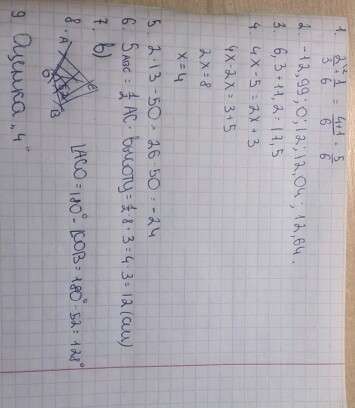 1. 2/3 + 1/6 = 4+1/6 = 5/6
2. -12,99; 0; 12; 12,04; 12,64.
3. 6,3 + 11,2 = 17,5
4. 4x - 5 = 2x + 3
4x - 2x = 3 + 5
2x = 8
x = 4
5. 2·13 - 50 = 26 50 = -24
6. S ABC = 1/2 AC · высоту = 1/2 8 · 3 = 4 · 3 = 12 (см)
7. b)
8. A O C B 52 ∠ACO = 180° - ∠COB = 180° - 52 = 128°
9 Оценка „4"